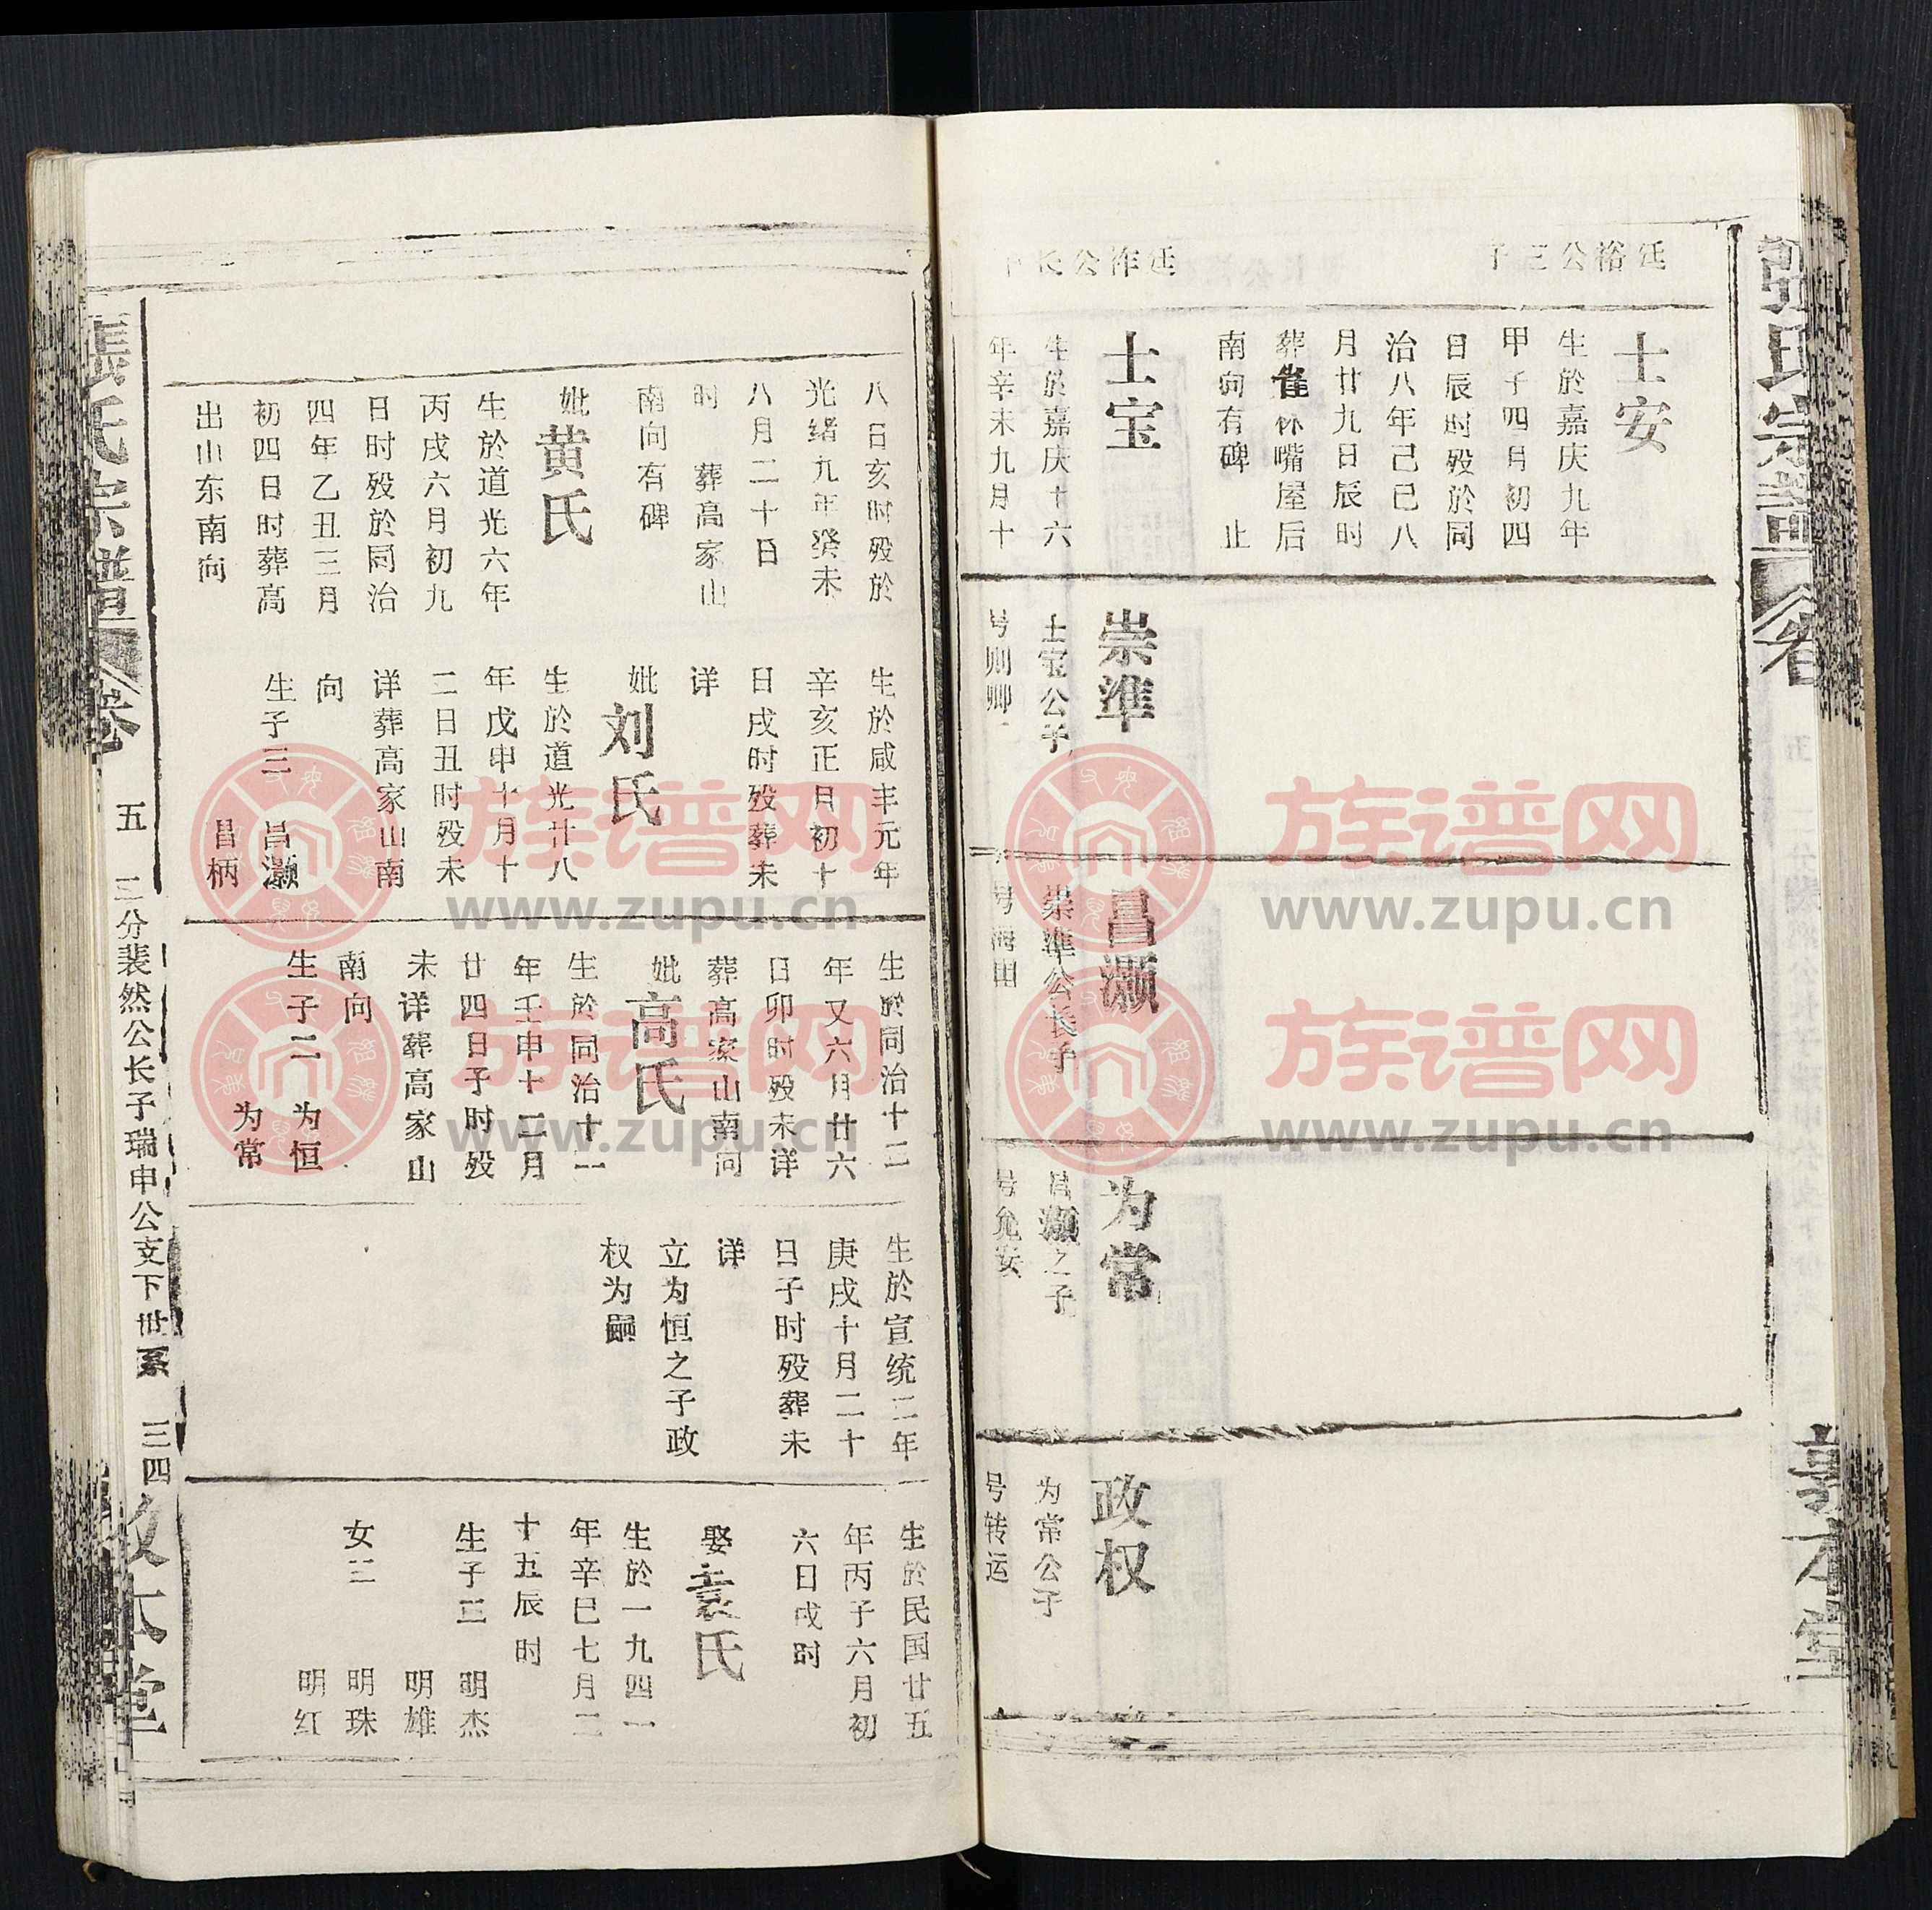 張氏宗譜
卷
敦本堂
廷裕公三子
士安
生於嘉庆九年
甲子四月初四
日辰时殁於同
治八年己巳八
月廿九日辰时
葬崔林嘴屋后
南向有碑 止
廷祚公长
士宝
生於嘉庆十六
年辛未九月十
八日亥时殁於
光绪九年癸未
八月二十日
时 葬高家山
南向有碑
妣黄氏
生於道光六年
丙戌六月初九
日时殁於同治
四年乙丑三月
初四日时葬高
出山东南向
崇準
士宝公子
号则卿
生於咸丰元年
辛亥正月初十
日戌时殁葬未
详
妣刘氏
生於道光廿八
年戊申十月十
二日丑时殁未
详葬高家山南
向
生子三 昌灏
昌柄
昌灏
崇準公长子
号海田
生於同治十二
年又六月廿六
日卯时殁未详
葬高家山南向
妣高氏
生於同治十一
年壬申十二月
廿四日子时殁
未详葬高家山
南向
生子二 为恒
为常
为常
昌灏之子
号允安
生於宣统二年
庚戌十月二十
日子时殁葬未
详
立为恒之子政
权为嗣
政权
为常公子
号转运
生於民国廿五
年丙子六月初
六日戌时
娶袁氏
生於一九四一
年辛巳七月二
十五辰时
生子二 明杰
明雄
女二 明珠
明红
張氏宗譜
卷
五
二分裴然公长子瑞申公支下世系
三四
敦本堂
族谱网
www.zupu.cn
族谱网
www.zupu.cn
族谱网
www.zupu.cn
族谱网
www.zupu.cn